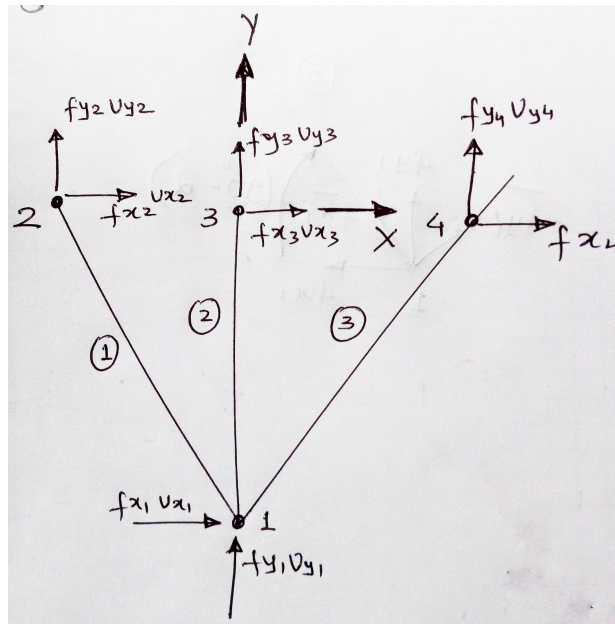 Y
fy2 Uy2
fy3 Uy3
fy4 Uy4
2
fx2 Ux2
3
fx3 Ux3
X
4
fx4
1
2
3
fx1 Ux1
1
fy1 Uy1